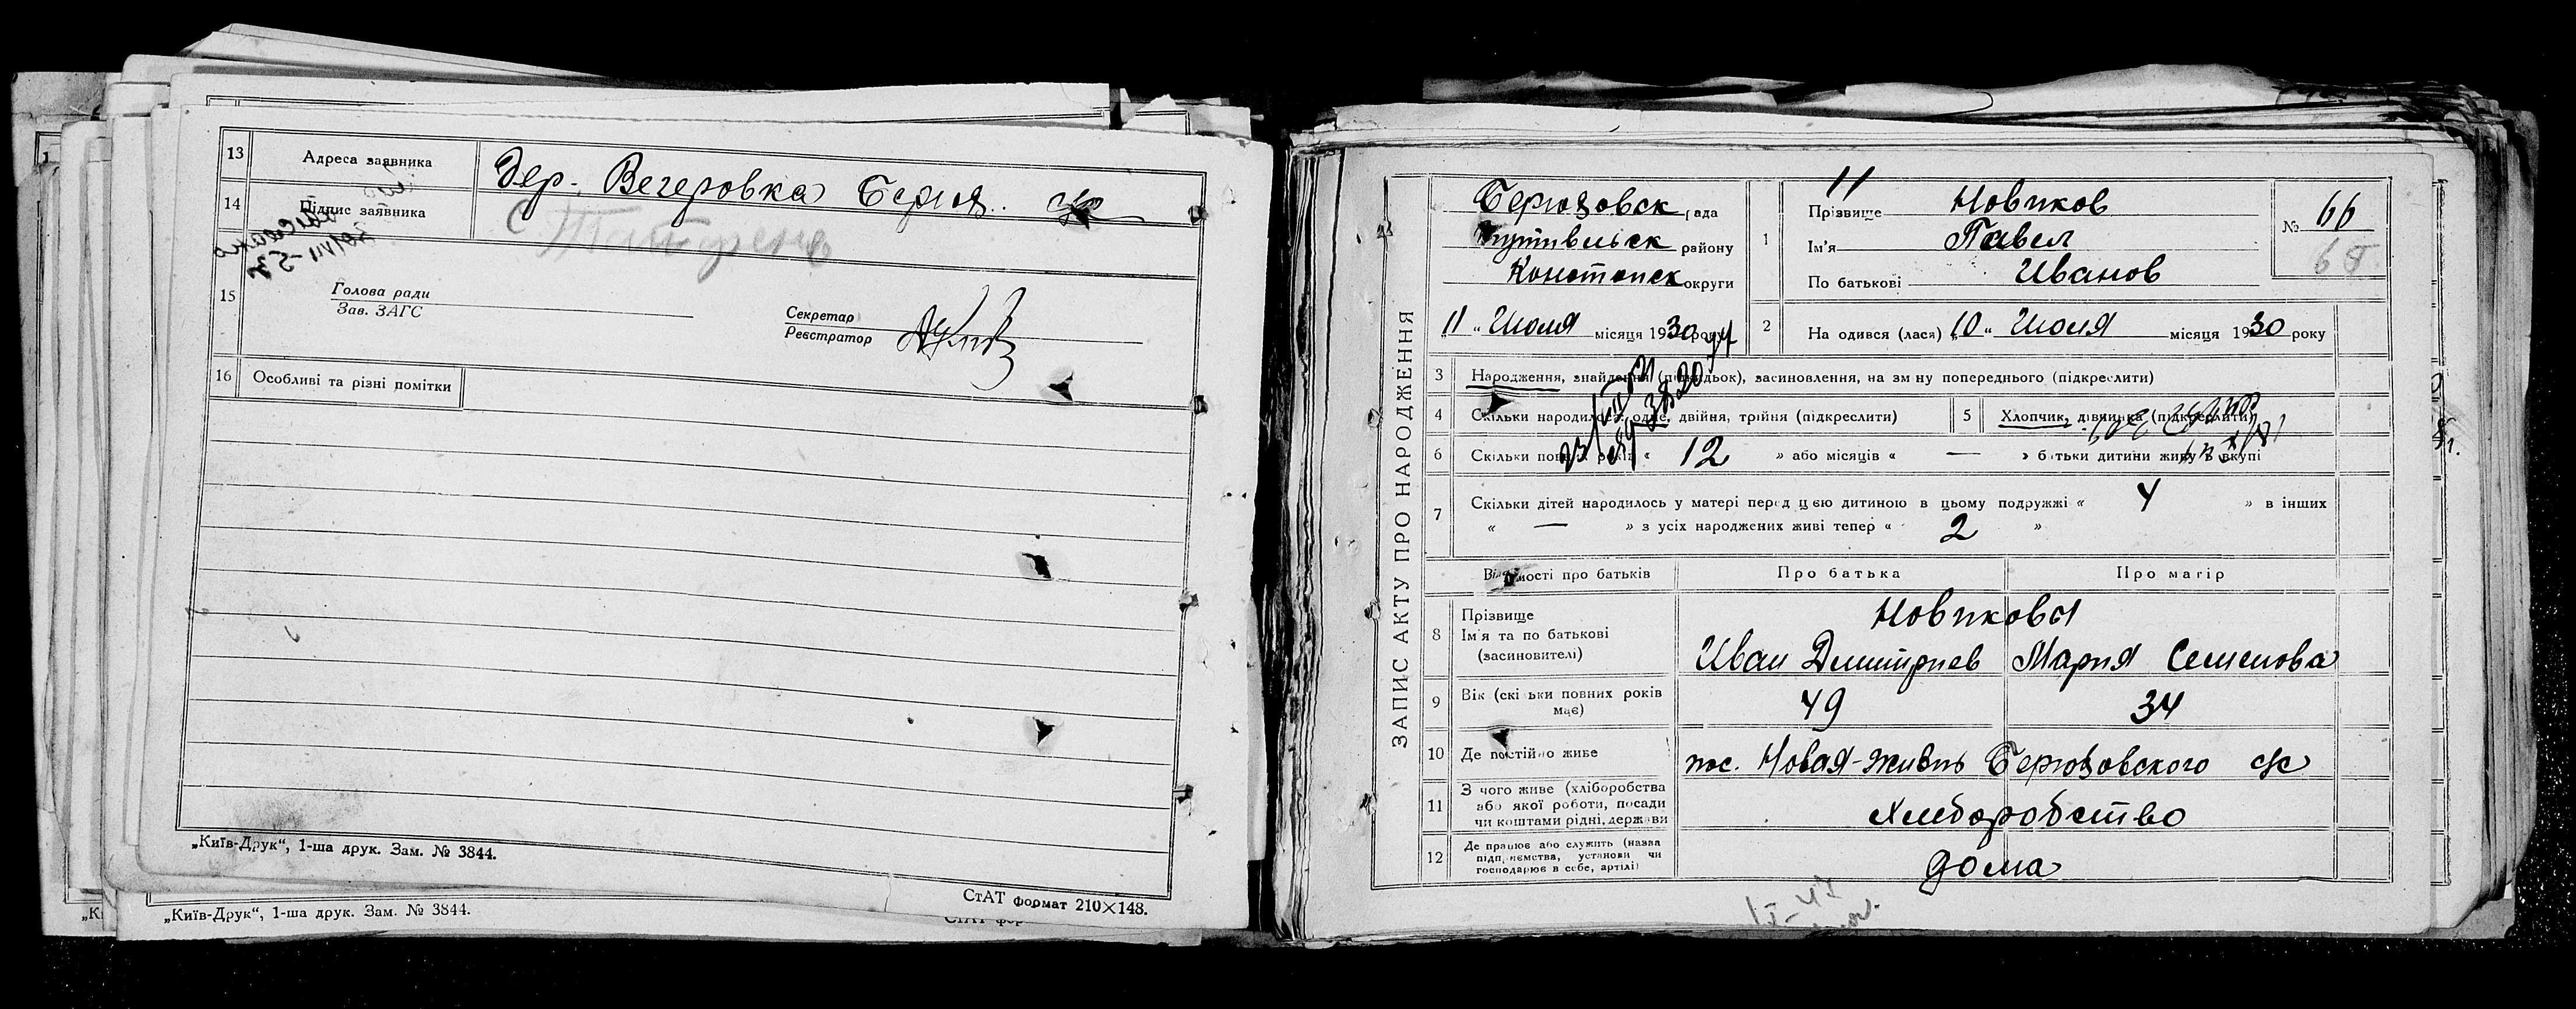 13 Адреса заявника Дер. Вегеровка Берюз. с/с
14 Підпис заявника
15
Голова ради
Зав. ЗАГС
Секретар
Реєстратор
16 Особливі та різні помітки
„Київ-Друк“, 1-ша друк. Зам. № 3844.
СтАТ формат 210×148.
„Київ-Друк“, 1-ша друк. Зам. № 3844.
ЗАПИС АКТУ ПРО НАРОДЖЕННЯ
Берюзовск рада
Путивльск району
Конотопск округи
11 „ Июля місяця 1930 року
1 Прізвище Новиков
Ім'я Павел
По батькові Иванов
№ 66
68
2 На одився (лася) „10 „ Июля місяця 1930 року
3 Народження, знайдення (підкидьок), засиновлення, на зм ну попереднього (підкреслити)
4 Скільки народилося: одне, двійня, трійня (підкреслити)
5 Хлопчик, дівчинка (підкреслити)
6 Скільки повних років « 12 » або місяців « — » батьки дитини живу в вкупі
7 Скільки дітей народилось у матері перед цією дитиною в цьому подружжі « 4 » в інших
« — » з усіх народжених живі тепер « 2 »
Відомості про батьків Про батька Про матір
8 Прізвище
Ім'я та по батькові
(засиновителі)
Новиковы
Иван Дмитриев Мария Семенова
9 Вік (скільки повних років
має)
49 34
10 Де постійно живе пос. Новая-жизнь Берюзовского с/с
11 З чого живе (хліборобства
або якої роботи, посади
чи коштами рідні, держави
Хлеборобство
12 Де працює або служить (назва
підприємства, установи чи
господарює в себе, артілі)
дома